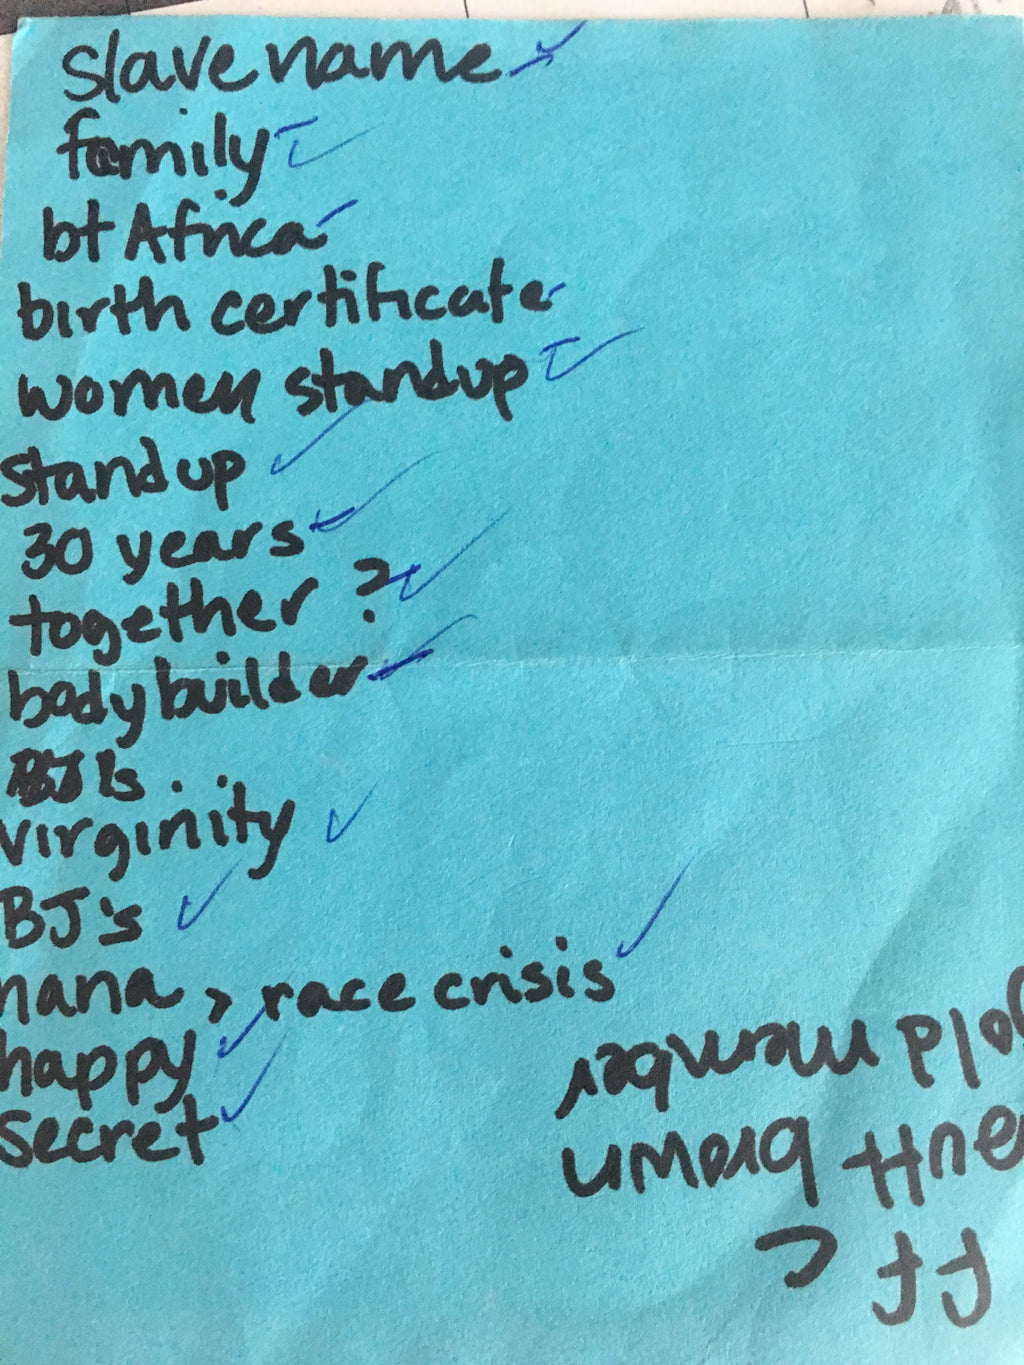 slave name
family
bt Africa
birth certificate
women standup
standup
30 years
together ?
body builder
virginity
BJ's
nana > race crisis
happy
secret
FFC
brown
gold member